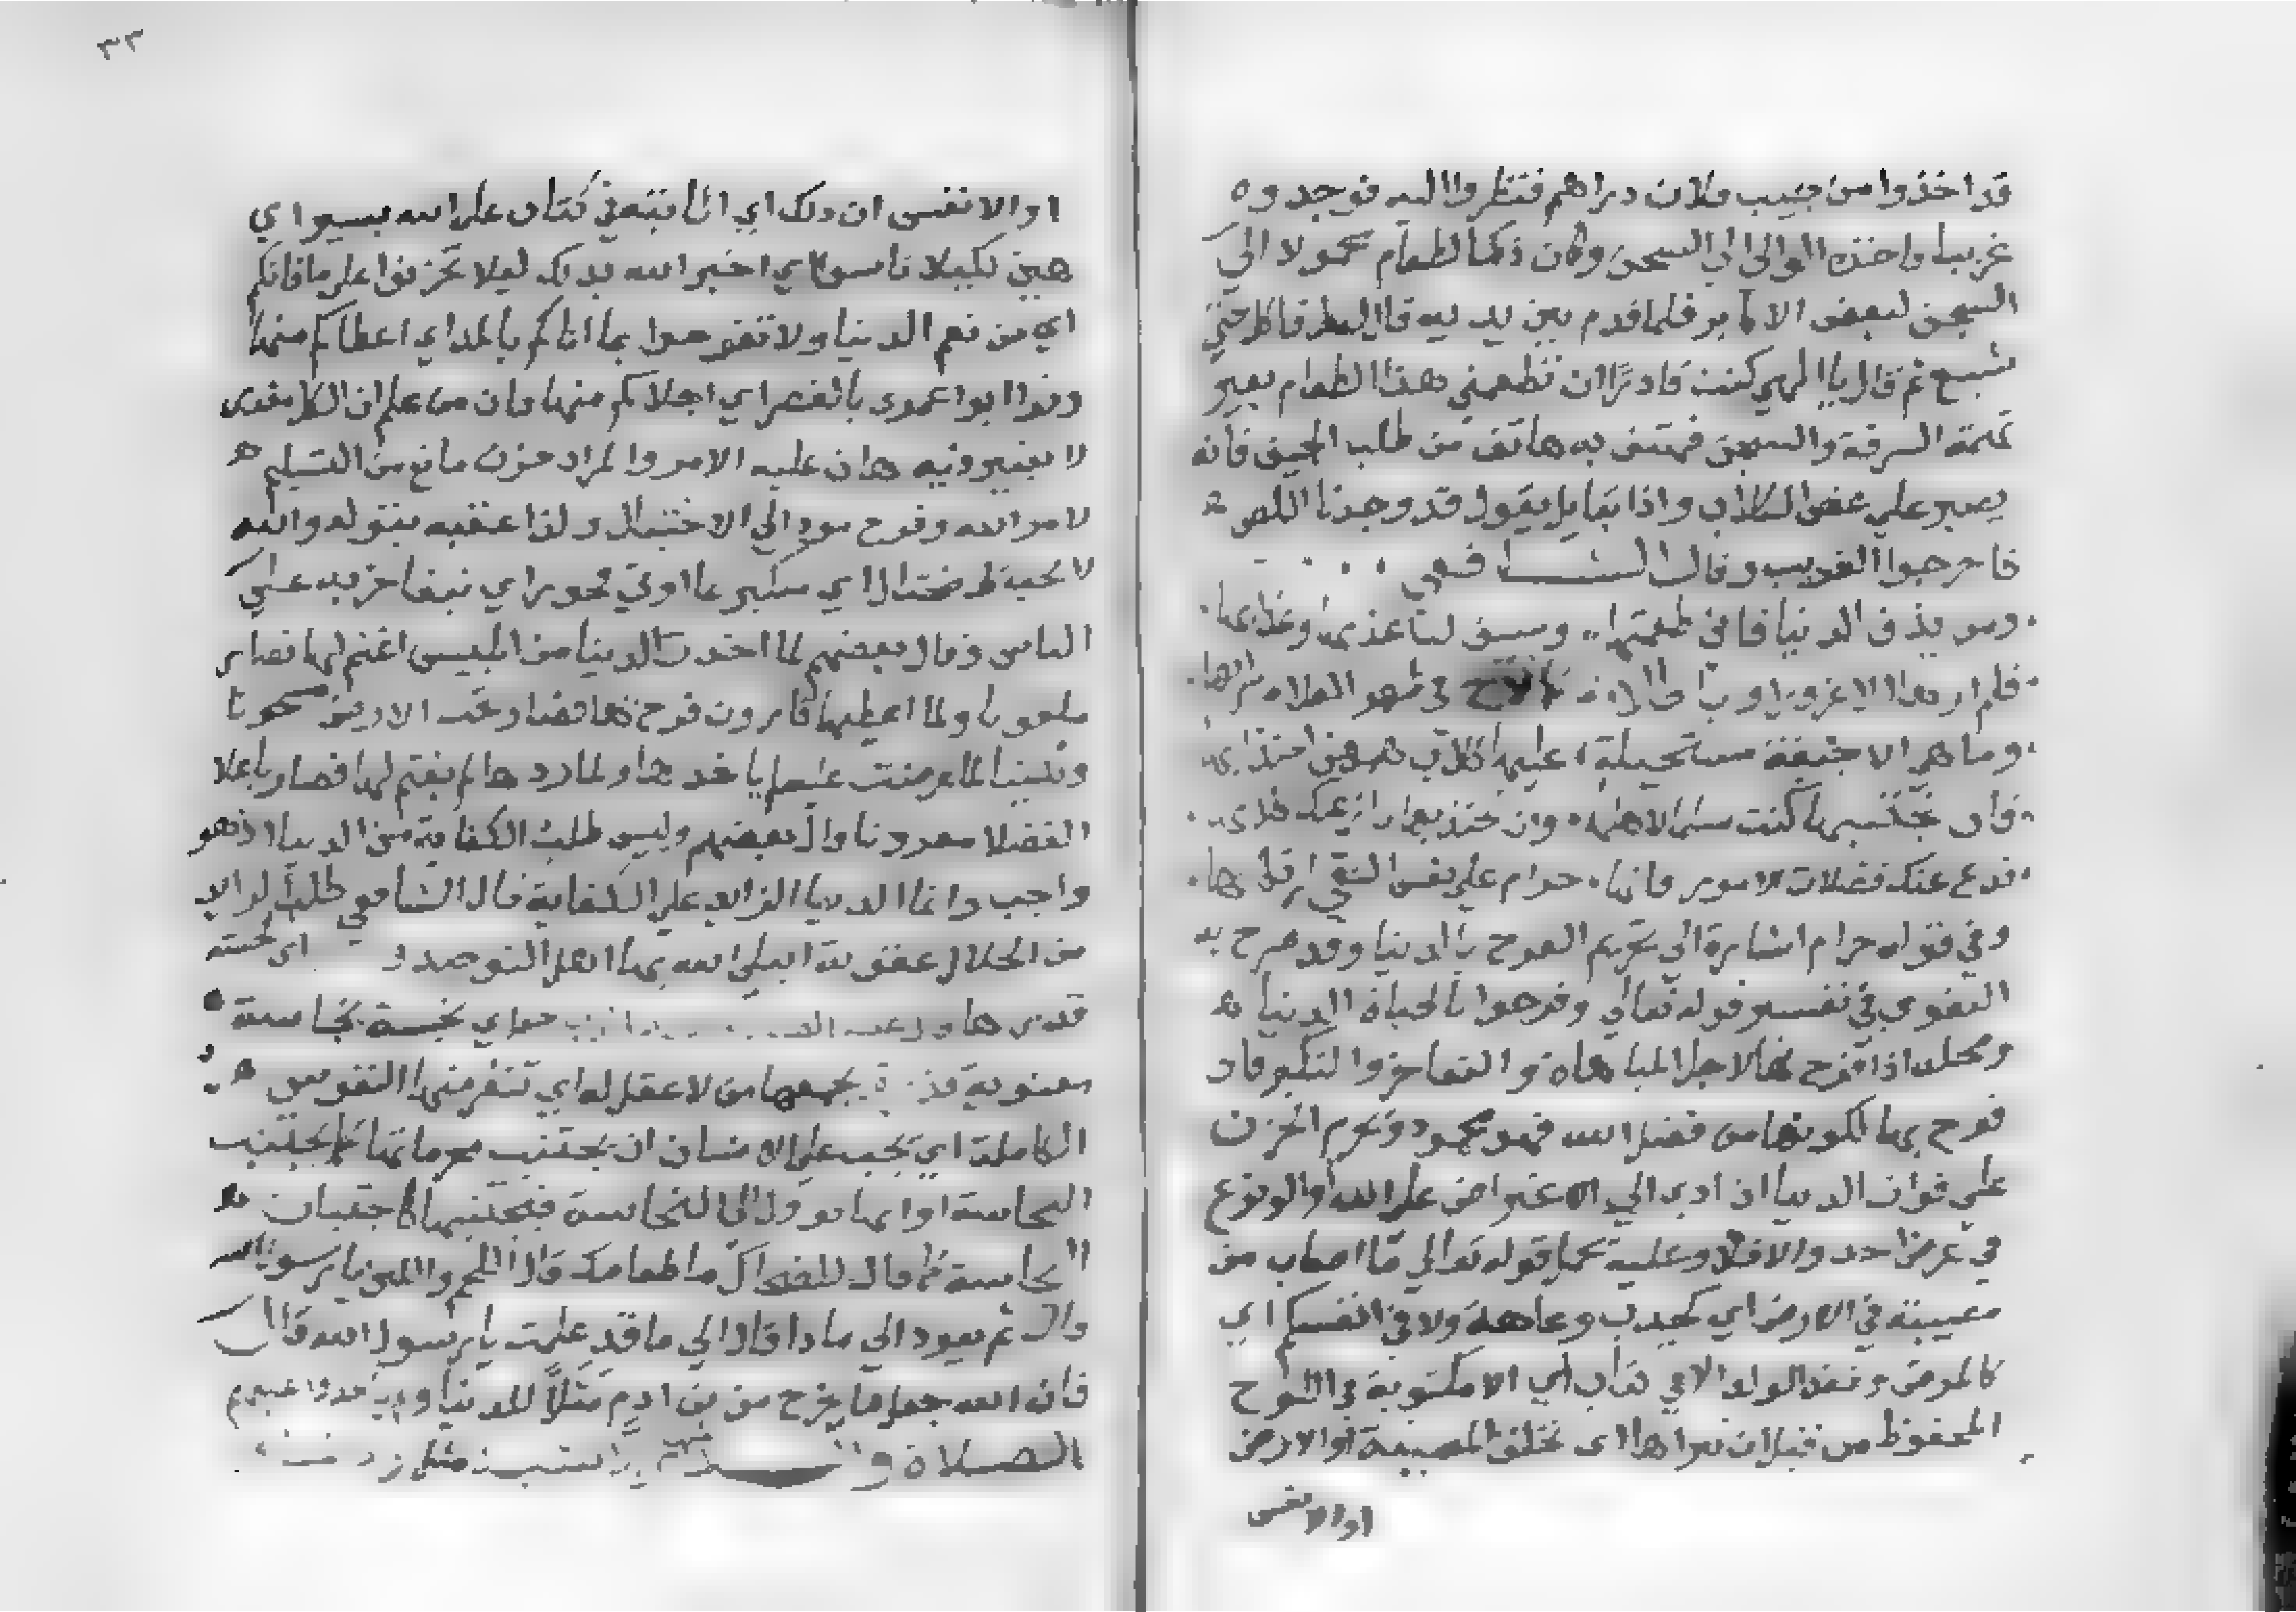 قد اخذوا من جيب فلان دراهم فنظروا اليه فوجدوه
غريبا فاخذه الوالي الي السجن وكان ذلك الطعام محمولا الي
السجن لبعض الاكابر فلما قدم بين يديه قال للفقير كل حتي
شبع ثم قال يا الهي كنت قادرًا ان تطعمني هذا الطعام بغير
تهمة السرقة والسجن فهتف به هاتف من طلب الجيف فانه
يصبر علي عض الكلاب واذا بقايل يقول قد وجدنا اللص
فاخرجوا الغريب وقال الشافعي
ومن يذق الدنيا فاني طعمتها وسيق لنا عذبها وعذابها
فلم ارها الا غرورا وباطلا كما لاح في ظهر الفلاة سرابها
وما هي الا جيفة مستحيلة عليها كلاب همهن اجتذابها
فان تجتنبها كنت سلما لاهلها وان تجتذبها نازعتك كلابها
فدع عنك فضلات الامور فانها حرام علي نفس التقي ارتكابها
وفي قوله حرام اشارة الي تحريم الفرح بالدنيا وقد صرح به
البغوي في تفسير قوله تعالي وفرحوا بالحياة الدنيا
ومحله اذا فرح بها لاجل المباهاة والتفاخر والتكبر فان
فرح بها لكونها من فضل الله فهو محمود وتحريم الحزن
علي فوات الدنيا ان ادي الي الاعتراض علي الله او الوقوع
في عرض احد والا فلا وعليه يحمل قوله تعالي ما اصاب من
مصيبة في الارض اي كجدب وعاهة ولا في انفسكم اي
كالمرض وفقد الولد الا في كتاب اي الا مكتوبة في اللوح
المحفوظ من قبل ان نبراها اي نخلق المصيبة او الارض
او الانفس
٣٣
او الانفس ان ذلك اي اثباته في كتاب علي الله يسير اي
هين لكيلا تاسوا اي اخبر الله بذلك ليلا تحزنوا علي ما فاتكم
اي من نعم الدنيا ولا تفرحوا بما اتاكم بالمد اي اعطاكم منها
وقرا ابو عمرو بالقصر اي اجلاكم منها فان من علم ان الكل مقدر
لا تغيير فيه هان عليه الامر والمراد حزن مانع من التسليم
لامر الله وفرح مود الي الاختيال ولذا عقبه بقوله والله
لا يحب كل مختال اي متكبر بما اوتي فخور اي يتفاخر به علي
الناس وقال بعضهم لما اخذت الدنيا من ابليس اغتم لها فصار
ملعونا ولما اعطيها قارون فرح بها فصار تحت الارض مسجونا
ونبينا لما عرضت عليه لم ياخذها ولما ردها لم يغتم لها فصار باعلا
الفضلا معدودنا وقال بعضهم وليس طلب الكفاية من الدنيا اذ هو
واجب وانما الدنيا الزايد علي الكفاية قال الشافعي طلب الزايد
من الحلال عقوبة ابتلي الله بها اهل التوحيد
قدرها اي نجسة نجاسة
معنوية يجمعها من لا عقل له اي تنفر منها النفوس
الكاملة اي يجب علي الانسان ان يجتنب محرماتها كما يجتنب
النجاسة او انها تؤول الي النجاسة فيجتنبها كاجتناب
النجاسة كما قال للضحاك ما طعامك قال اللحم واللبن يا رسول الله
قال ثم يعود الي ماذا قال الي ما قد علمت يا رسول الله قال
فان الله جعل ما يخرج من بن ادم مثلاً للدنيا
الصلاة